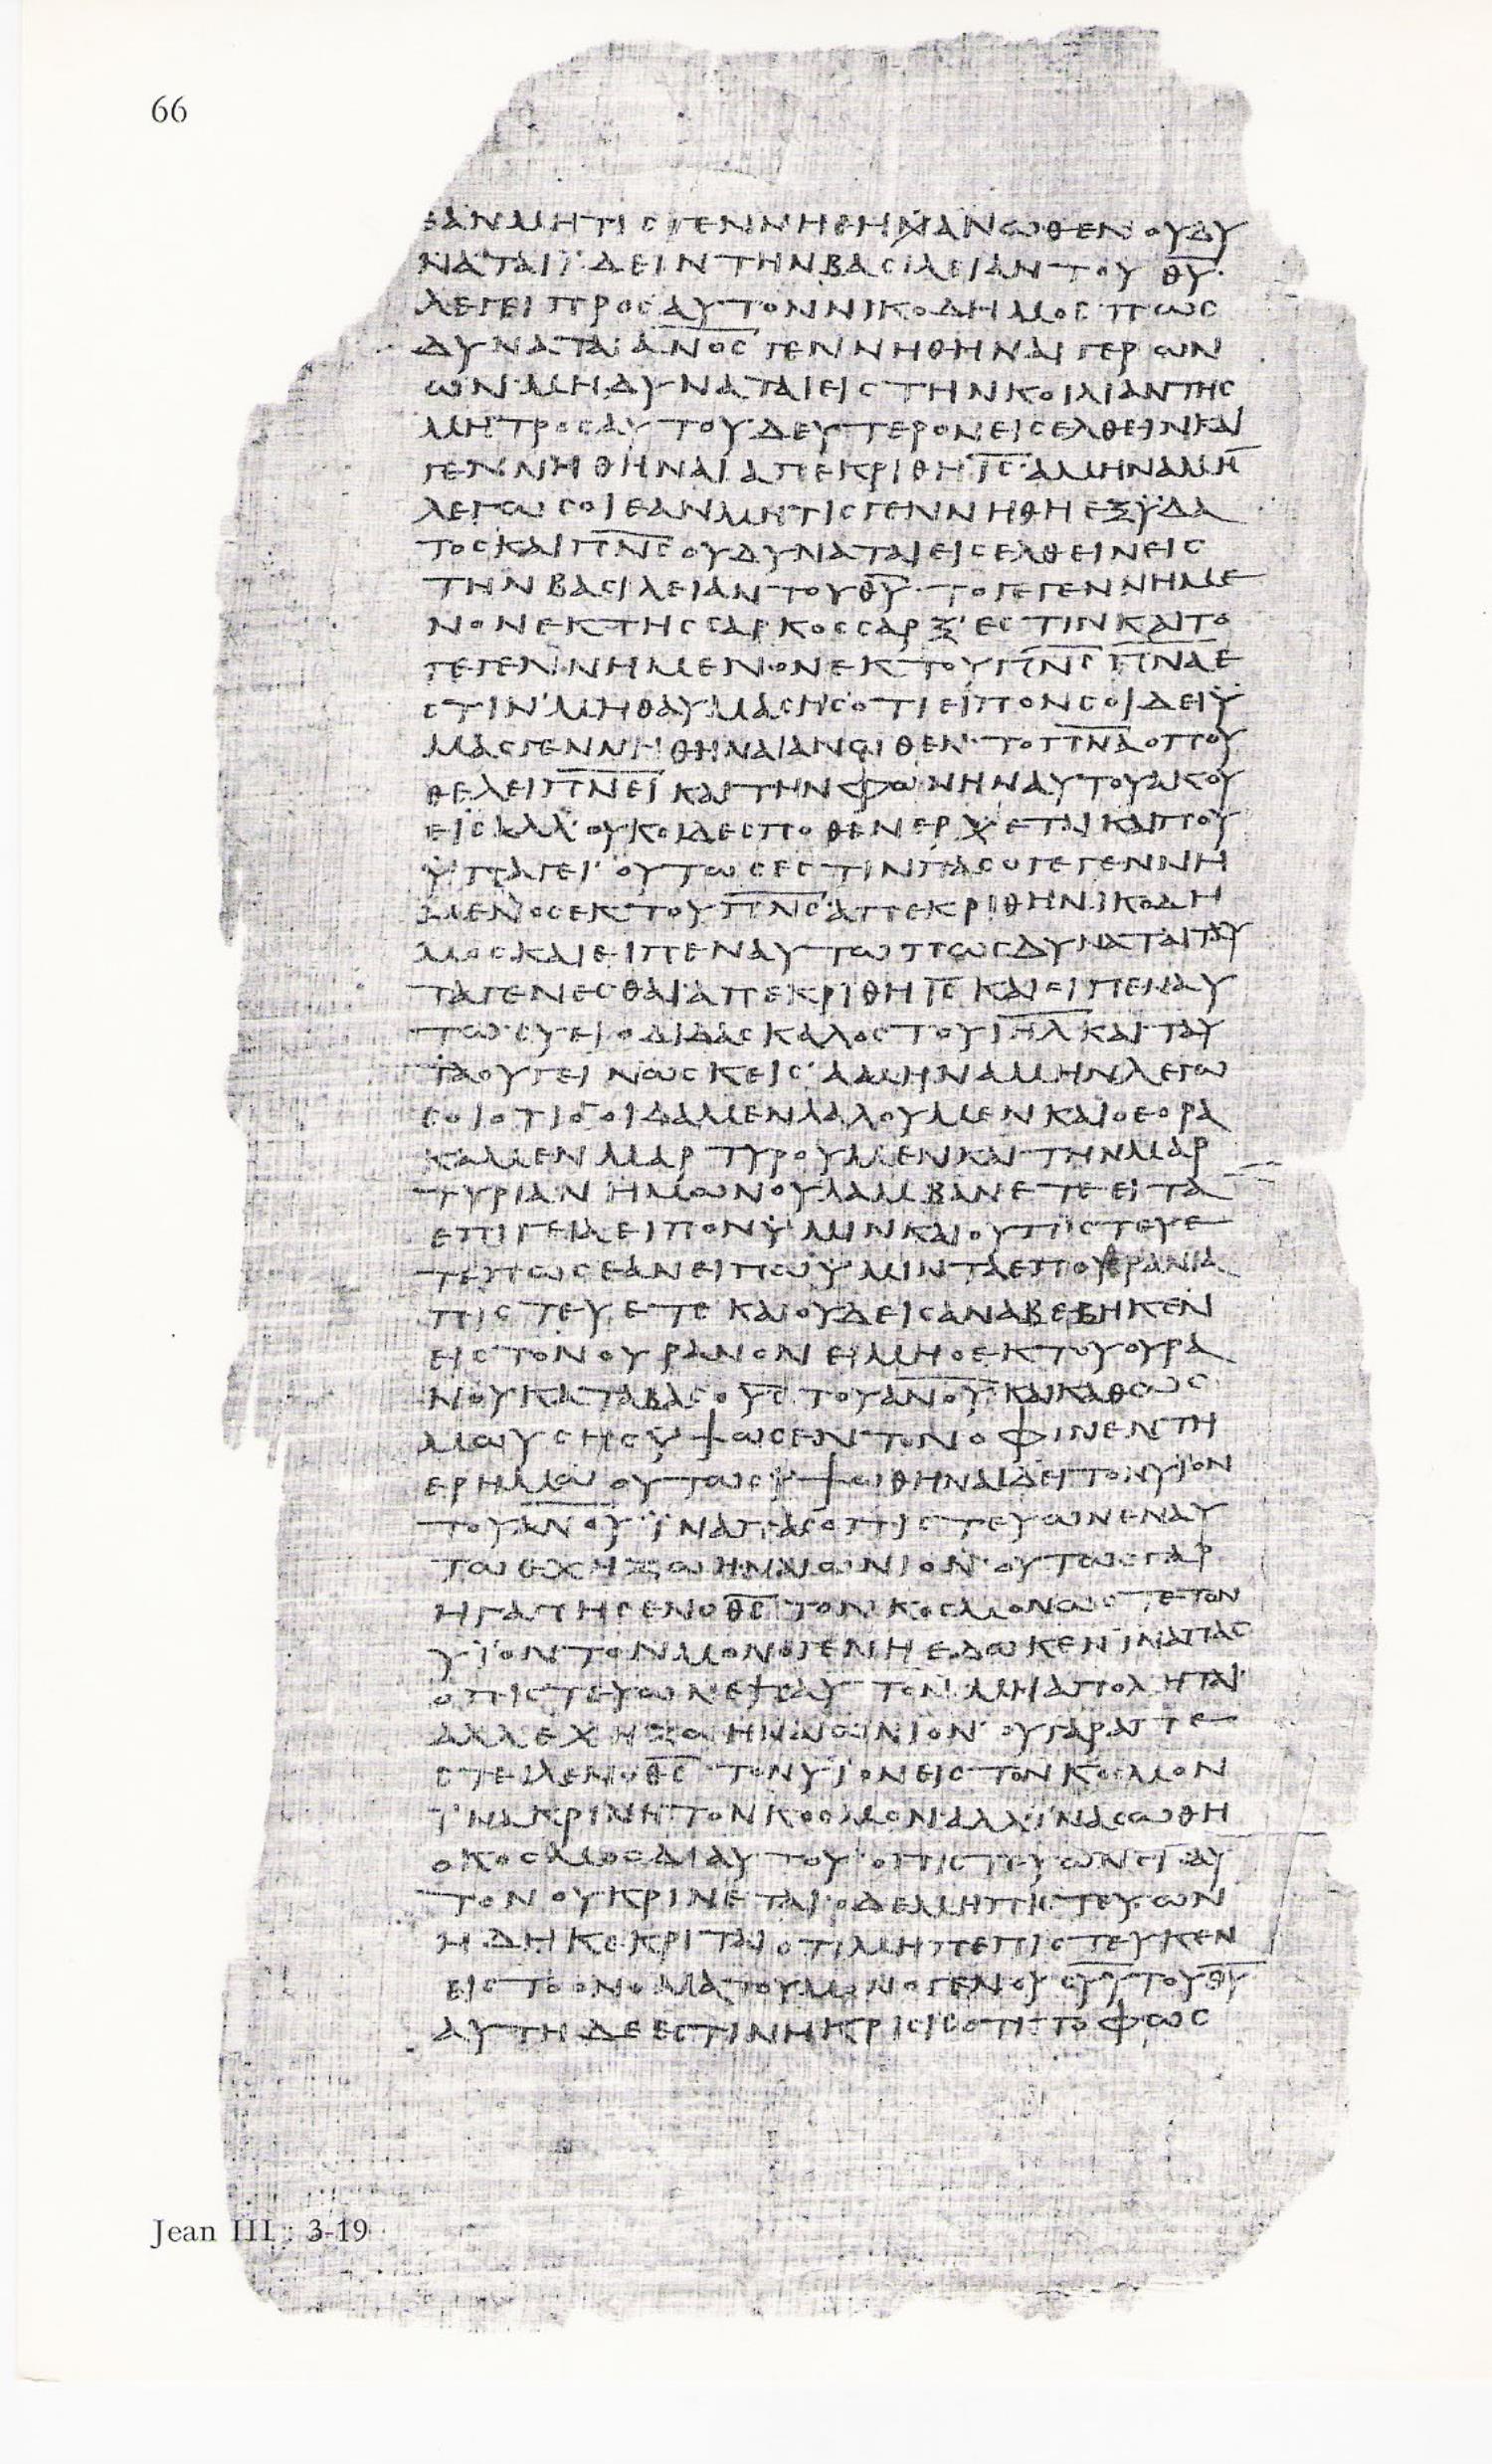 66
ΕΑΝΜΗΤΙΣΓΕΝΝΗΘΗΑΝΩΘΕΝΟΥΔΥ
ΝΑΤΑΙΪΔΕΙΝΤΗΝΒΑΣΙΛΕΙΑΝΤΟΥΘ̅Υ̅·
ΛΕΓΕΙΠΡΟΣΑΥΤΟΝΝΙΚΟΔΗΜΟΣΠΩΣ
ΔΥΝΑΤΑΙΑ̅Ν̅Ο̅Σ̅ΓΕΝΝΗΘΗΝΑΙΓΕΡΩΝ
ΩΝ·ΜΗΔΥΝΑΤΑΙΕΙΣΤΗΝΚΟΙΛΙΑΝΤΗΣ
ΜΗΤΡΟΣΑΥΤΟΥΔΕΥΤΕΡΟΝΕΙΣΕΛΘΕΙΝΚΑΙ
ΓΕΝΝΗΘΗΝΑΙΑΠΕΚΡΙΘΗΙ̅Σ̅·ΑΜΗΝΑΜΗ̅
ΛΕΓΩΣΟΙΕΑΝΜΗΤΙΣΓΕΝΝΗΘΗΕΞΫΔΑ
ΤΟΣΚΑΙΠ̅Ν̅Σ̅ΟΥΔΥΝΑΤΑΙΕΙΣΕΛΘΕΙΝΕΙΣ
ΤΗΝΒΑΣΙΛΕΙΑΝΤΟΥΘ̅Υ̅·ΤΟΓΕΓΕΝΝΗΜΕ
ΝΟΝΕΚΤΗΣΣΑΡΚΟΣΣΑΡΞ'ΕΣΤΙΝΚΑΙΤΟ
ΓΕΓΕΝΝΗΜΕΝΟΝΕΚΤΟΥΠ̅Ν̅Σ̅Π̅Ν̅Α̅Ε
ΣΤΙΝ·ΜΗΘΑΥΜΑΣΗΣΟΤΙΕΙΠΟΝΣΟΙΔΕΙΫ
ΜΑΣΓΕΝΝΗΘΗΝΑΙΑΝΩΘΕΝ·ΤΟΠ̅Ν̅Α̅ΟΠΟΥ
ΘΕΛΕΙΠ̅Ν̅Ε̅Ι̅ΚΑΙΤΗΝΦΩΝΗΝΑΥΤΟΥΑΚΟΥ
ΕΙΣΑΛΛ'ΟΥΚΟΙΔΕΣΠΟΘΕΝΕΡΧΕΤΑΙΚΑΙΠΟΥ
ΫΠΑΓΕΙ·ΟΥΤΩΣΕΣΤΙΝΠΑΣΟΓΕΓΕΝΝΗ
ΜΕΝΟΣΕΚΤΟΥΠ̅Ν̅Σ̅·ΑΠΕΚΡΙΘΗΝΙΚΟΔΗ
ΜΟΣΚΑΙΕΙΠΕΝΑΥΤΩΠΩΣΔΥΝΑΤΑΙΤΟΥ
ΤΑΓΕΝΕΣΘΑΙ·ΑΠΕΚΡΙΘΗΙ̅Σ̅ΚΑΙΕΙΠΕΝΑΥ
ΤΩΣΥΕΙΟΔΙΔΑΣΚΑΛΟΣΤΟΥΙ̅Η̅Λ̅ΚΑΙΤΑΥ
ΤΑΟΥΓΕΙΝΩΣΚΕΙΣ·ΑΜΗΝΑΜΗΝΛΕΓΩ
ΣΟΙΟΤΙΟΟΙΔΑΜΕΝΛΑΛΟΥΜΕΝΚΑΙΟΕΟΡΑ
ΚΑΜΕΝΜΑΡΤΥΡΟΥΜΕΝΚΑΙΤΗΝΜΑΡ
ΤΥΡΙΑΝΗΜΩΝΟΥΛΑΜΒΑΝΕΤΕΕΙΤΑ
ΕΠΙΓΕΙΑΕΙΠΟΝΫΜΙΝΚΑΙΟΥΠΙΣΤΕΥΕ
ΤΕΠΩΣΕΑΝΕΙΠΩΫΜΙΝΤΑΕΠΟΥΡΑΝΙΑ
ΠΙΣΤΕΥΕΤΕΚΑΙΟΥΔΕΙΣΑΝΑΒΕΒΗΚΕΝ
ΕΙΣΤΟΝΟΥΡΑΝΟΝΕΙΜΗΟΕΚΤΟΥΟΥΡΑ
ΝΟΥΚΑΤΑΒΑΣΟΥ̅Σ̅ΤΟΥΑ̅Ν̅Ο̅Υ̅·ΚΑΙΚΑΘΩΣ
ΜΩΥΣΗΣΫΨΩΣΕΝΤΟΝΟΦΙΝΕΝΤΗ
ΕΡΗΜΩΟΥΤΩΣΫΨΩΘΗΝΑΙΔΕΙΤΟΝΥΪΟΝ
ΤΟΥΑ̅Ν̅Ο̅Υ̅ΪΝΑΠΑΣΟΠΙΣΤΕΥΩΝΕΝΑΥ
ΤΩΕΧΗΖΩΗΝΑΙΩΝΙΟΝ·ΟΥΤΩΣΓΑΡ
ΗΓΑΠΗΣΕΝΟΘ̅Σ̅ΤΟΝΚΟΣΜΟΝΩΣΤΕΤΟΝ
ΥΪΟΝΤΟΝΜΟΝΟΓΕΝΗΕΔΩΚΕΝΪΝΑΠΑΣ
ΟΠΙΣΤΕΥΩΝΕΠΑΥΤΟΝΜΗΑΠΟΛΗΤΑΙ·
ΑΛΛΕΧΗΖΩΗΝΑΙΩΝΙΟΝ·ΟΥΓΑΡΑΠΕ
ΣΤΕΙΛΕΝΟΘ̅Σ̅ΤΟΝΥΪΟΝΕΙΣΤΟΝΚΟΣΜΟΝ
ΪΝΑΚΡΙΝΗΤΟΝΚΟΣΜΟΝΑΛΛΪΝΑΣΩΘΗ
ΟΚΟΣΜΟΣΔΙΑΥΤΟΥ·ΟΠΙΣΤΕΥΩΝΕΙΣΑΥ
ΤΟΝΟΥΚΡΙΝΕΤΑΙ·ΟΔΕΜΗΠΙΣΤΕΥΩΝ
ΗΔΗΚΕΚΡΙΤΑΙΟΤΙΜΗΠΕΠΙΣΤΕΥΚΕΝ
ΕΙΣΤΟΟΝΟΜΑΤΟΥΜΟΝΟΓΕΝΟΥΣΥ̅Υ̅ΤΟΥΘ̅Υ̅
ΑΥΤΗΔΕΕΣΤΙΝΗΚΡΙΣΙΣΟΤΙΤΟΦΩΣ
Jean III : 3-19